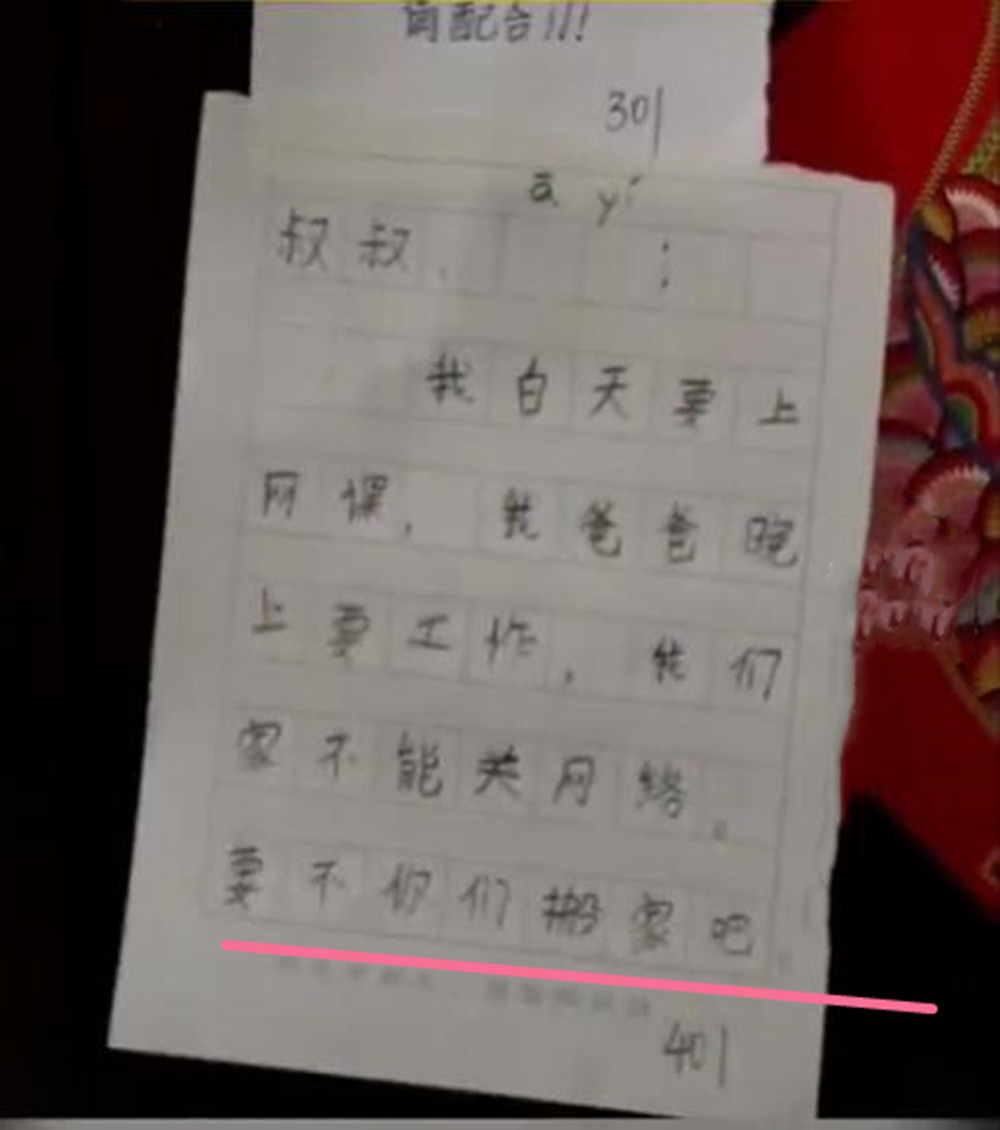 请配合!!!
301
ā yí
叔叔、 :
我白天要上
网课，我爸爸晚
上要工作，我们
家不能关网络。
要不你们搬家吧。
401